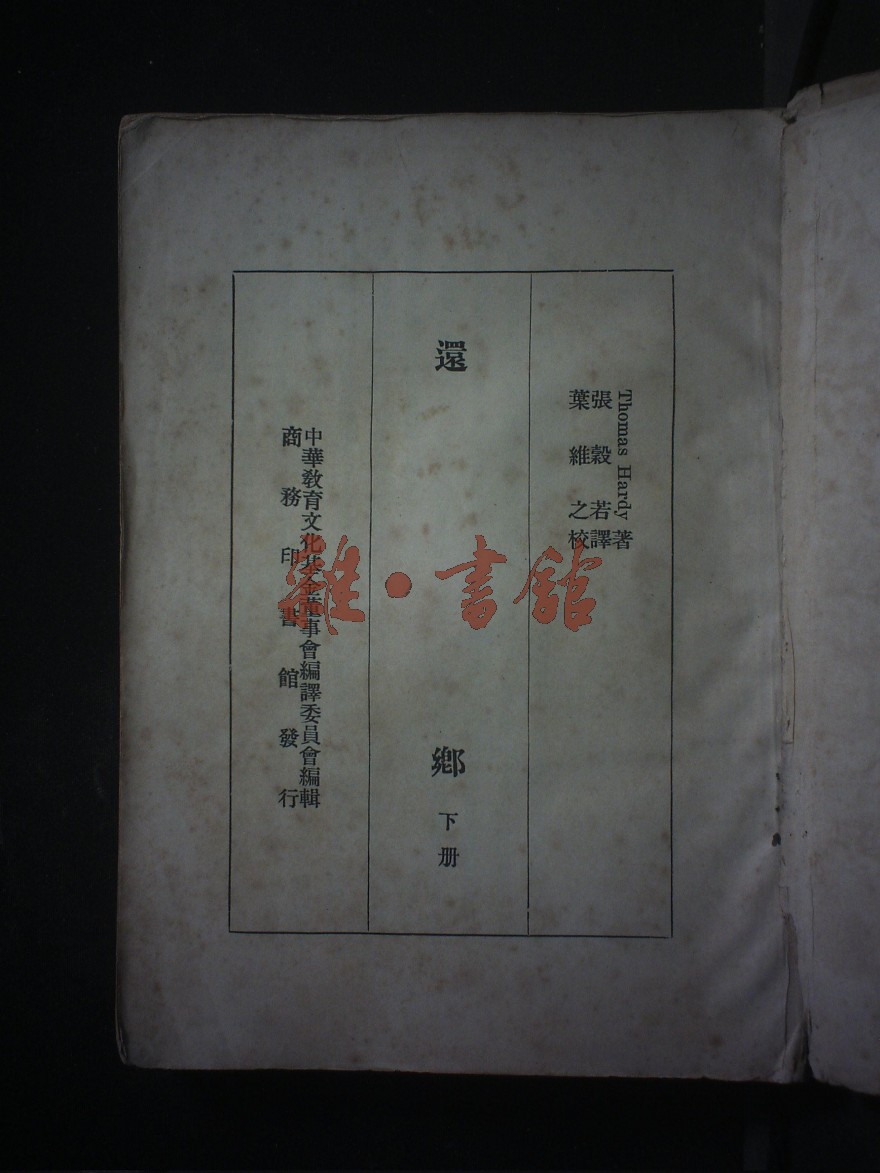 Thomas Hardy 著
張穀若譯
葉維之校
還鄉 下册
中華教育文化基金董事會編譯委員會編輯
商務印書館發行
雜·書館